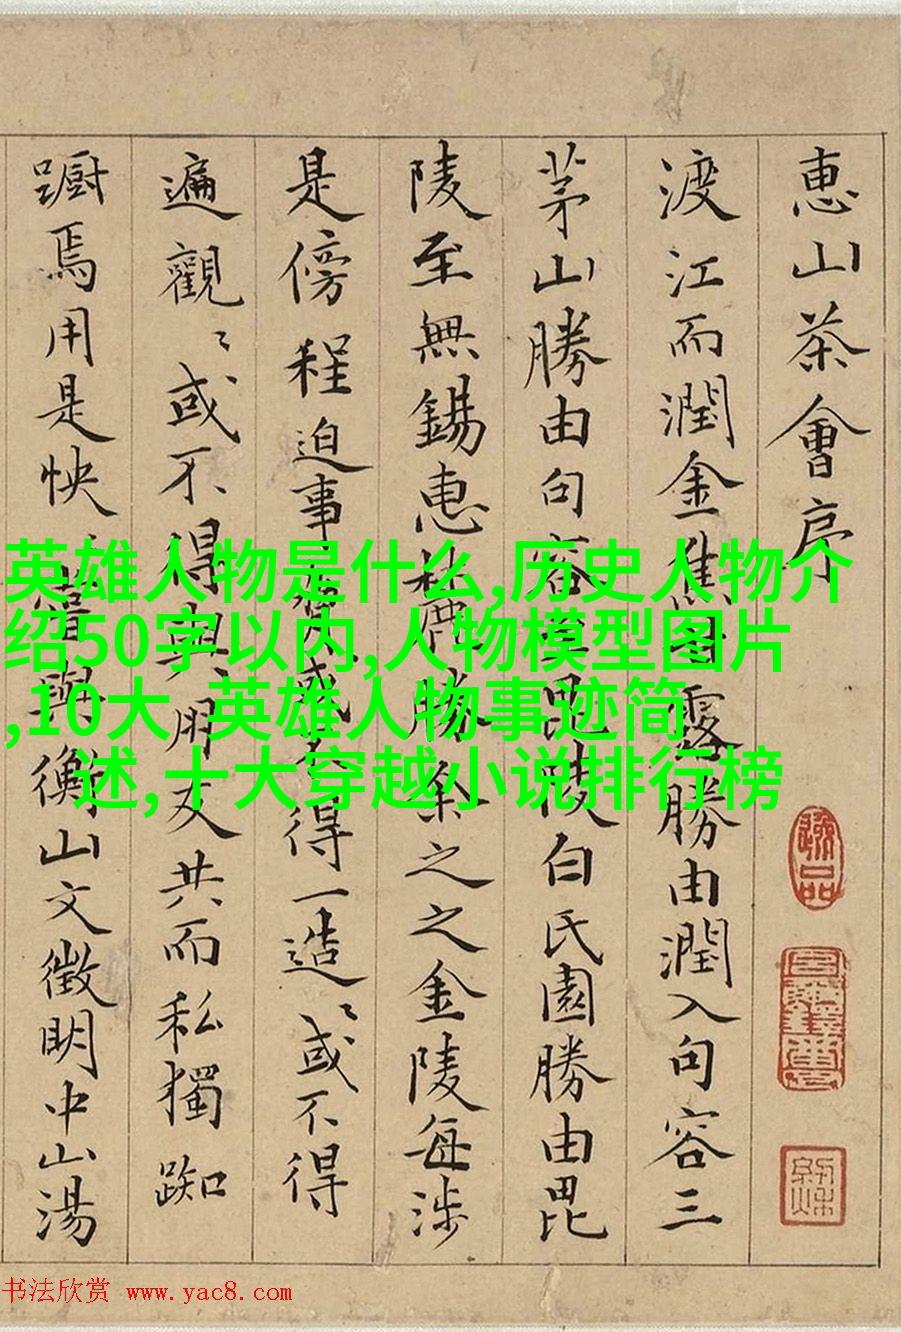 惠山茶會序
渡江而潤金焦甘露勝由潤入句容三
茅山勝由句容至毘陵白氏園勝由毘
陵至無錫惠麓勝余之之金陵每涉
是傍程迫事不得一造〻或不得
遍觀〻或不得與用友共而私獨踟
躕焉用是怏〻嘗與衡山文徵明中山湯
英雄人物是什么,历史人物介
绍50字以内,人物模型图片
,10大 英雄人物事迹简
述,十大穿越小说排行榜
书法欣赏 www.yac8.com